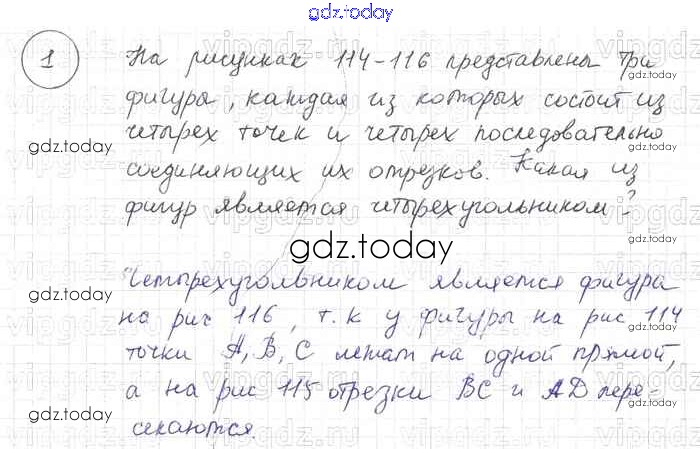 gdz.today
1
На рисунках 114-116 представлены три
фигуры, каждая из которых состоит из
четырех точек и четырех последовательно
соединяющих их отрезков. Какая из
фигур является четырехугольником?
gdz.today
gdz.today
gdz.today
Четырехугольником является фигура
на рис 116, т.к у фигуры на рис 114
точки А, В, С лежат на одной прямой,
а на рис 115 отрезки ВС и AD пере-
секаются.
gdz.today
gdz.today